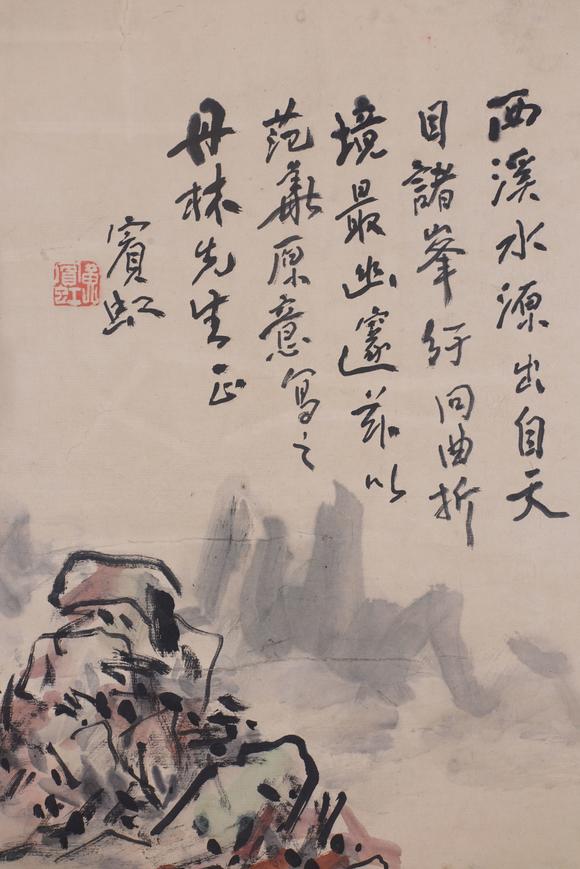 西溪水源出自天
目諸峯紆回曲折
境最幽邃茲以
范華原意寫之
丹林先生正
賓虹
黃賓虹